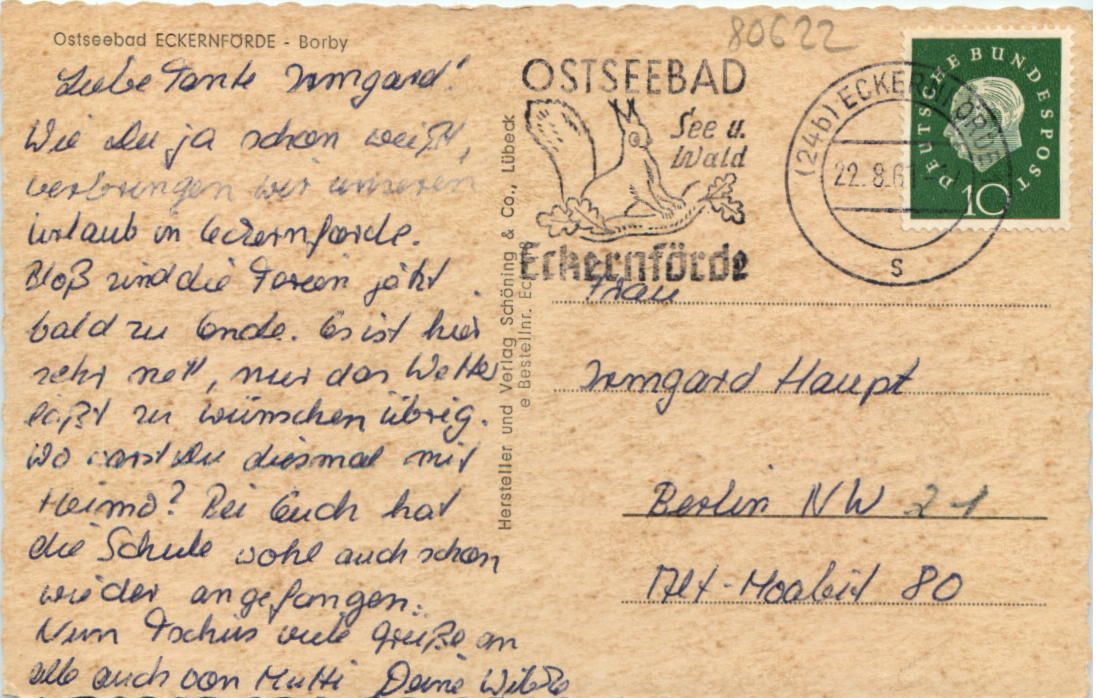 Ostseebad ECKERNFÖRDE - Borby
Liebe Tante Irmgard!
Wie Du ja schon weißt,
verbringen wir unseren
Urlaub in Eckernförde.
Bloß sind die Ferien jetzt
bald zu Ende. Es ist hier
sehr nett, nur das Wetter
läßt zu wünschen übrig.
Wo warst Du diesmal mit
Heimo? Bei Euch hat
die Schule wohl auch schon
wieder angefangen.
Nun Tschüs viele Grüße an
alle auch von Mutti Deine
Hersteller und Verlag Schöning & Co., Lübeck
e Bestellnr.
80622
OSTSEEBAD
See u.
Wald
Eckernförde
(24b) ECKERNFÖRDE
22.8.61
s
DEUTSCHE BUNDESPOST
10
Frau
Irmgard Haupt
Berlin NW 21
Alt-Moabit 80